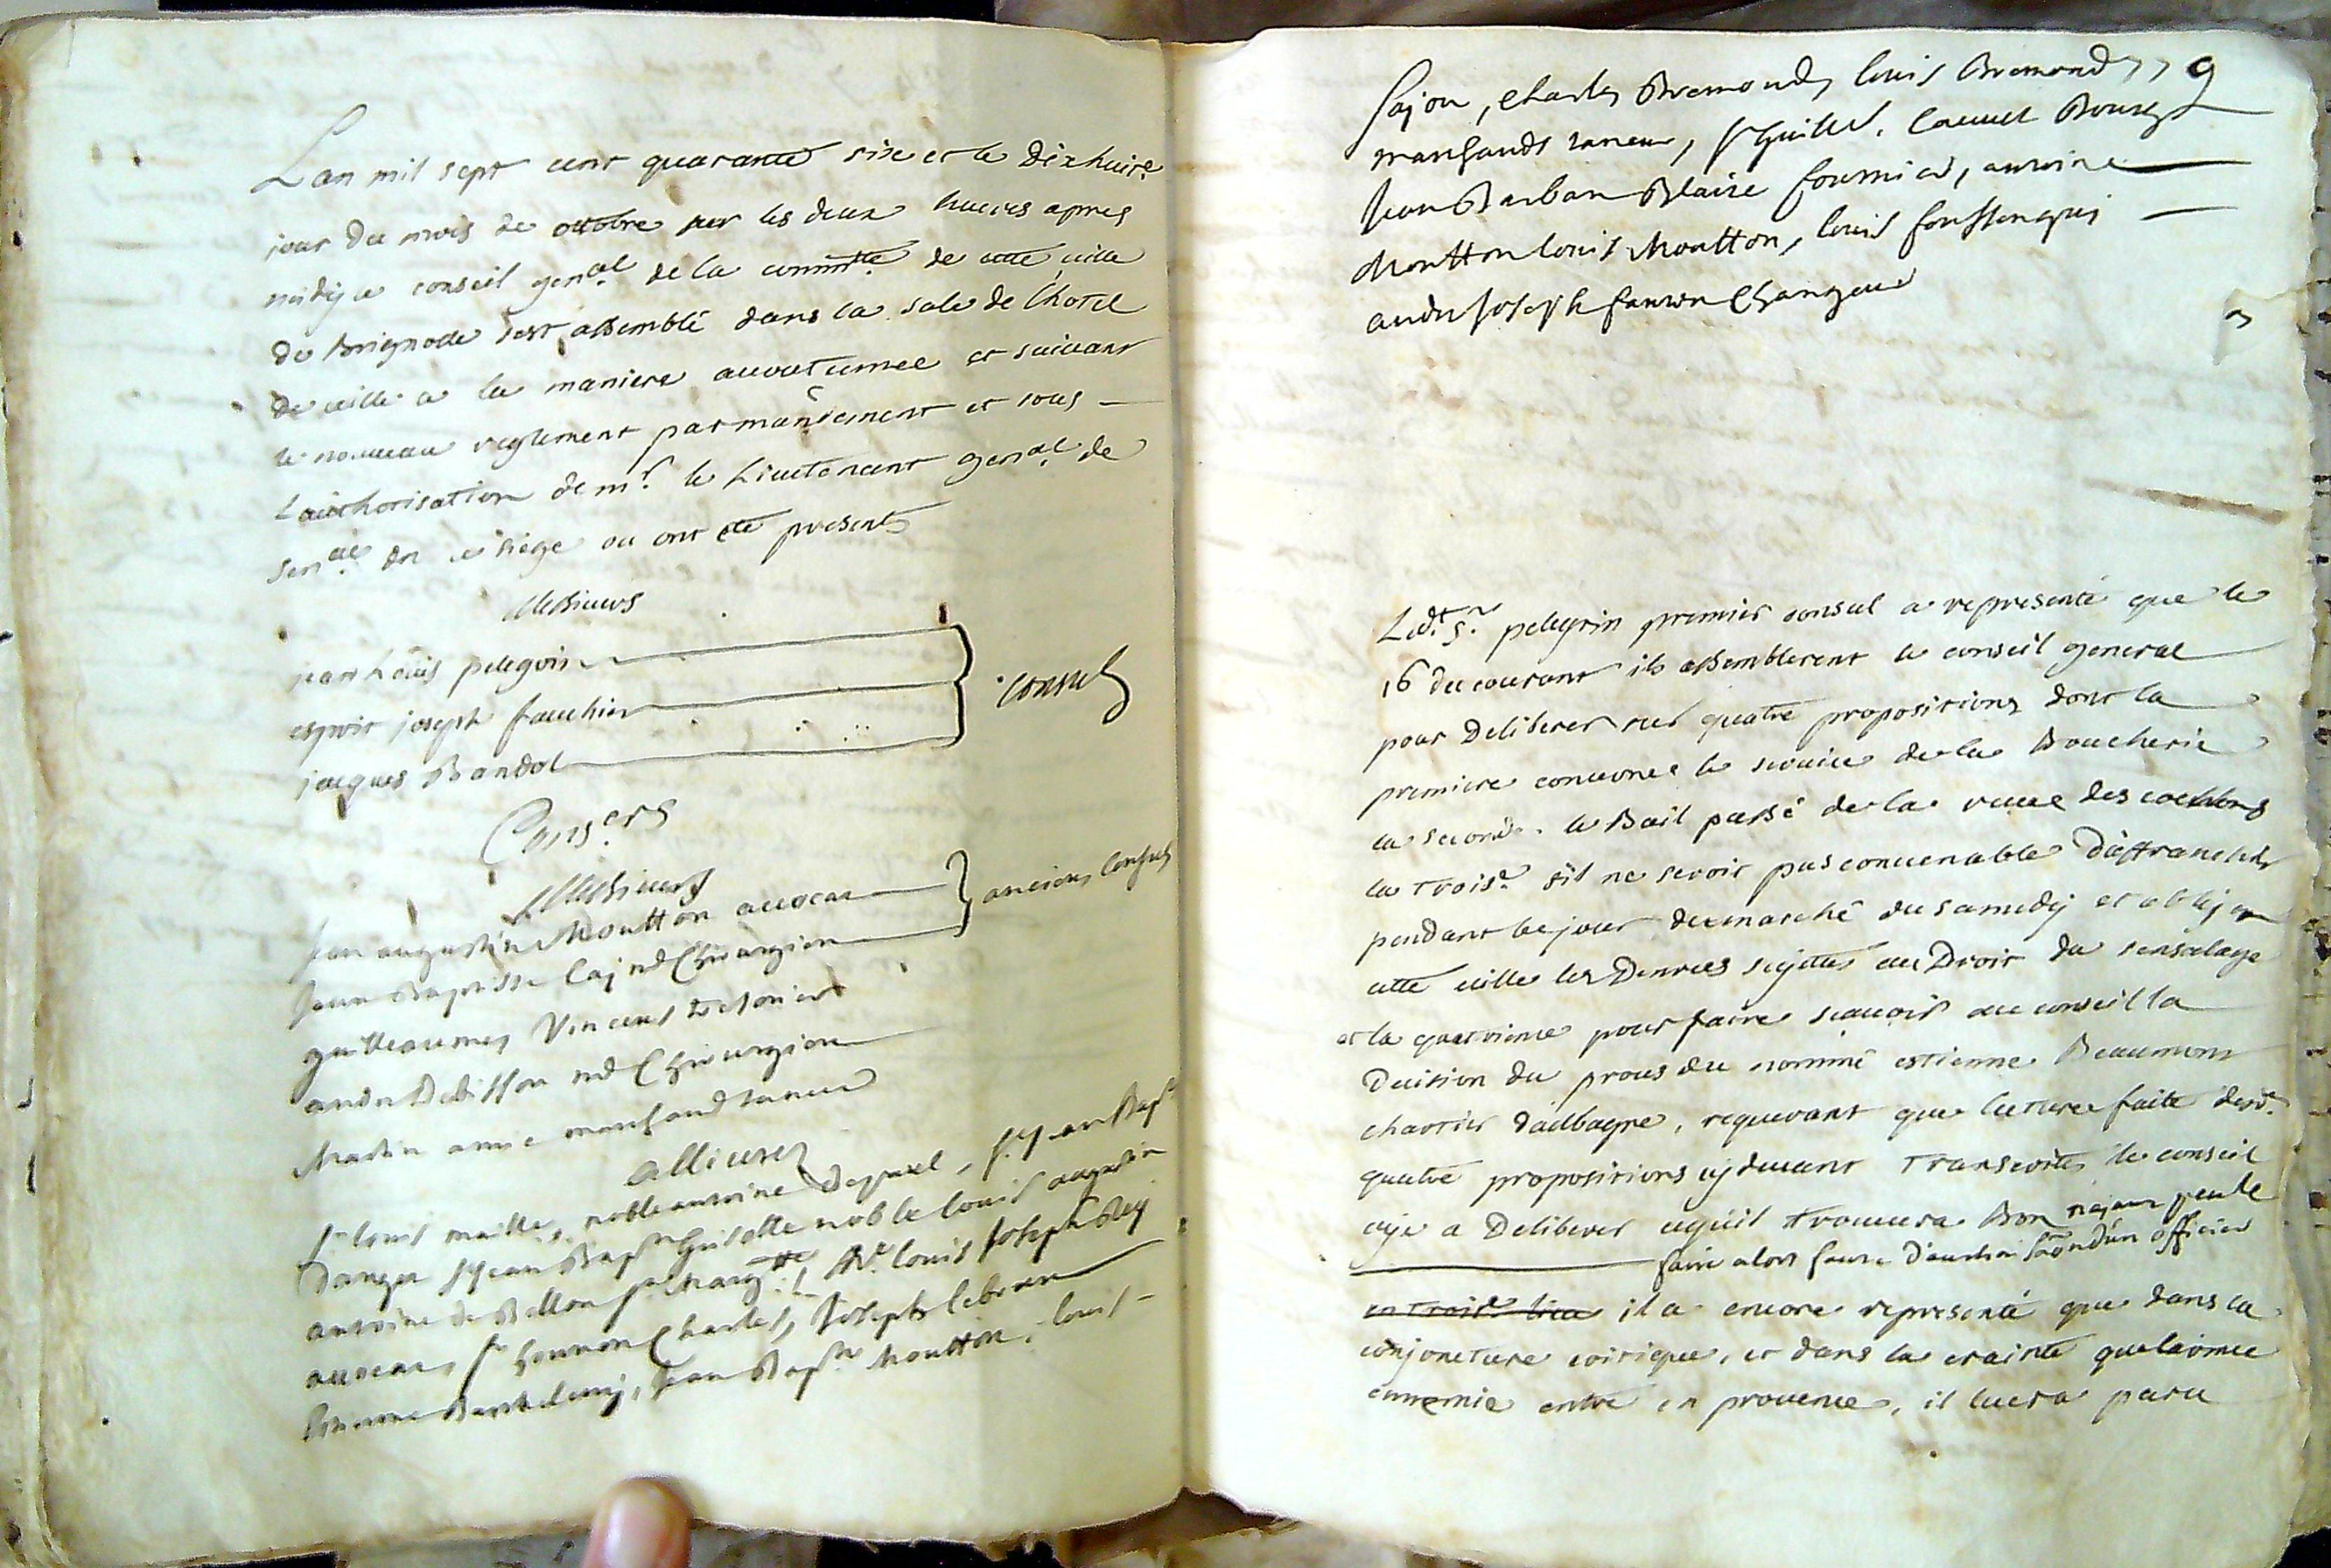 Lan mil sept cent quarante six et le dixhuit.e
jour du mois de ottobre sur les deux heures apres
midy le conseil gen.al de la commté de cette ville
de Brignolle sest assemblé dans la sale de lhotel
de ville a la maniere accoutumee et suivant
le nouveau reglement par mandement et sous
Lauthorisation de mr. le Lieutenant gen.al de
sen.ce en ce siege ou ont eté presents
Messieurs
jean Louis pelegrin
esprit joseph fauchier
jacques Bandol
consuls
Cons.ers
Messieurs
Jean augustin Moutton avocat
Jean Baptiste md Chirurgien
anciens Consuls
guilleaumes Vincens
andre Debisson md Chirurgien
Martin amic marchand taneur
allieurs
Sr louis maille, noble antoine , Sr Jean Bapt
danger Sr jean Bapt noble louis augustin
antoine de Bellon louis Joseph Rey
avocat, Sr honnoré Charles, Joseph lebrun
Estienne Barthelemy, jean Bapt. Moutton, louis
9
Sajou, Charles Bremond, louis Bremond
marchands taneur, Sr Guille. Bourge
Jean Barban Blaise fournier, antoine
Moutton louis Moutton, louis foussenquis
andre Joseph Changeur
Led.t s.r pelegrin premier consul a representé que le
16 du courant ils assemblerent le conseil general
pour Deliberer sur quatre propositions dont la
premiere concerne le service de la Boucherie
la second.e le Bail passé de la rüee des cochons
la trois.e sil ne seroit pas convenable daffranchir
pendant le jour du marché du samedy et
cette ville les Denrees sujettes au Droit du sensalage
et la quatrieme pour faire scavoir au conseil la
Decision du proces du nommé estienne Beaumont
chartier daubagne, requerant que lecture faite desd.
quatre propositions cy devant transcrites, le conseil
aye a Deliberer cequil trouvera Bon nayant peu le
faire alors faute dun officier
en trois.e lieu il a encore representé que dans la
conjoncture critique, et dans la crainte que larmee
ennemie entre en provence, il lura paru